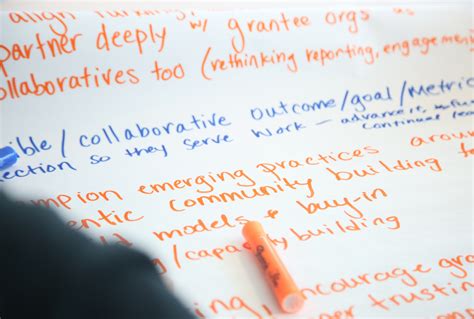 align funding
partner deeply w/ grantee orgs as
ollaboratives too (rethinking reporting, engagemen
ible/collaborative outcome/goal/metric
ection so they serve work - advance it,
continual
mpion emerging practices around
entic community building
models + buy-in
/capacity building
ing, encourage gra